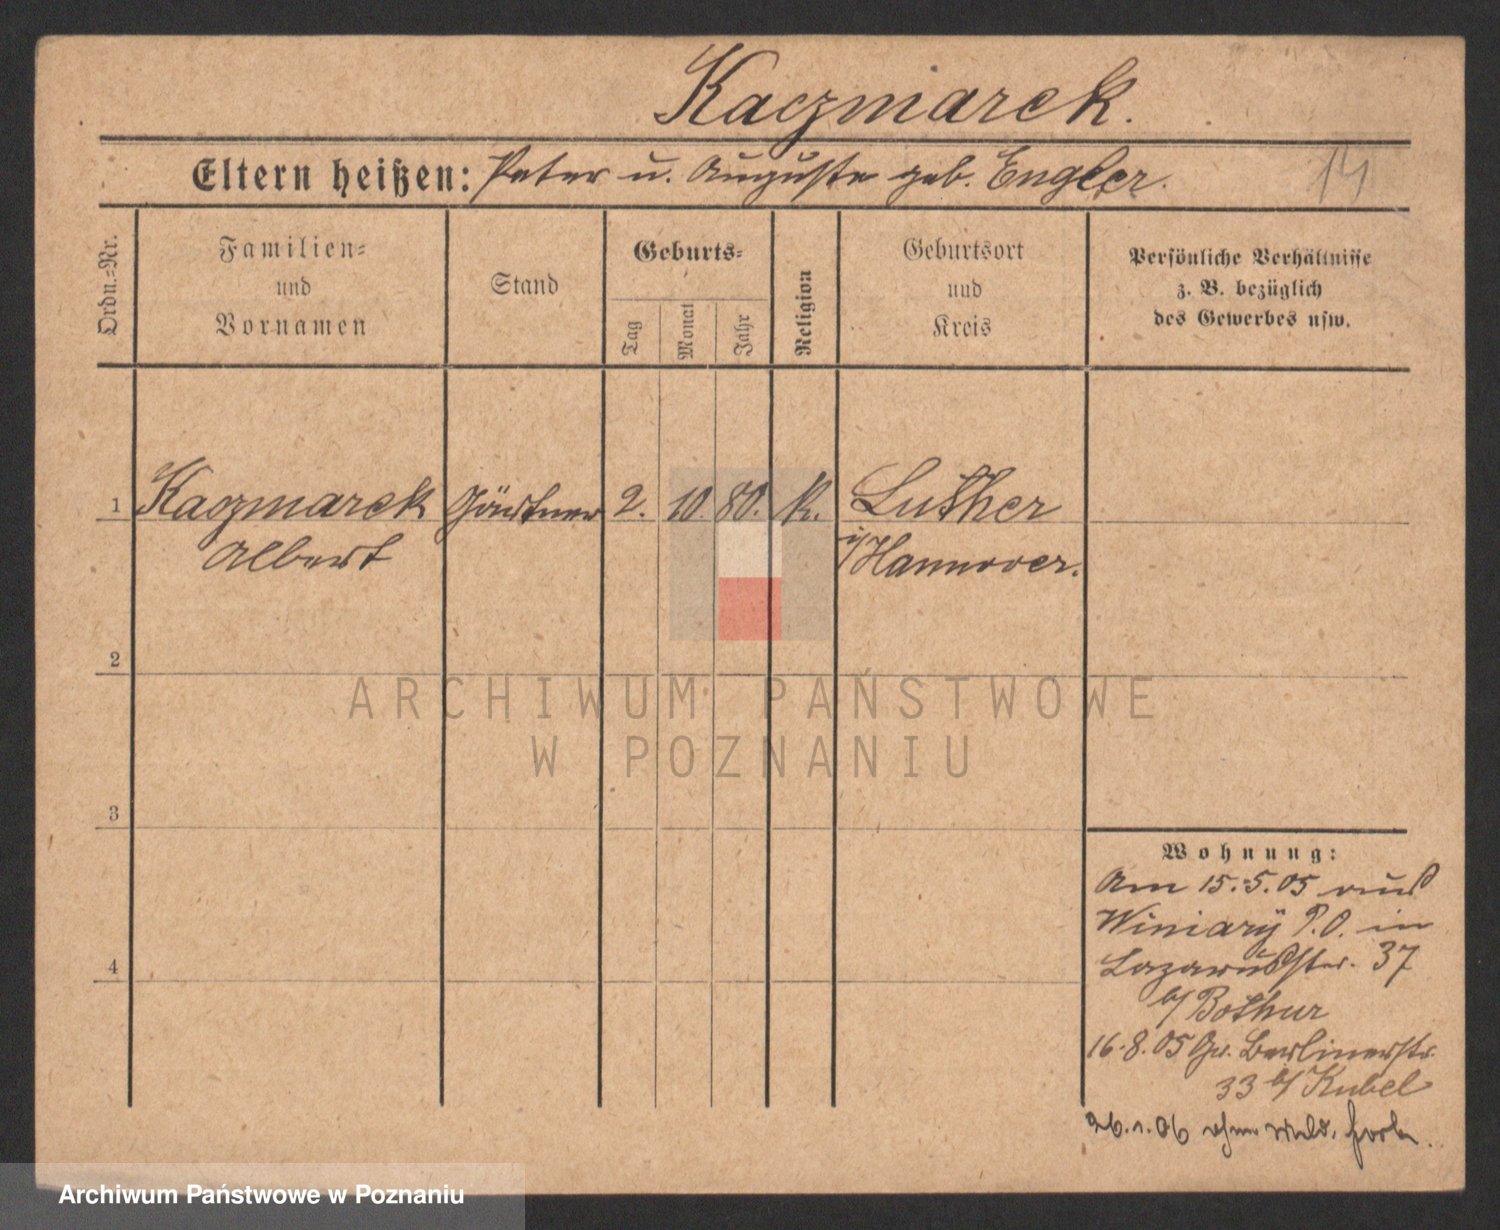 Kaczmarek.
Eltern heißen: Peter u. Auguste geb. Engler.
14
Ordn.-Nr.
Familien-
und
Vornamen
Stand
Geburts-
Tag
Monat
Jahr
Religion
Geburtsort
und
Kreis
Persönliche Verhältnisse
z. B. bezüglich
des Gewerbes usw.
1 Kaczmarek Gärtner 2. 10. 80. k. Luther
Albert i/Hannover.
2
ARCHIWUM PAŃSTWOWE
W POZNANIU
3
Wohnung:
Am 15.5.05 aus
Winiary P.O. in
Lazarusstr. 37
4
b/ Bothur
16.8.05 Gr. Berlinerstr.
33 b/ Kubel
26.1.06 ohne Meld. fort.
Archiwum Państwowe w Poznaniu